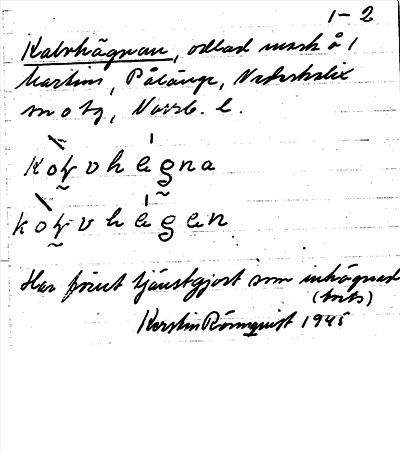 1-2
Kalvhägnan, odlad mark å 1
Martins, Pålänge, Nederkalix
sn o tg, Norrb. l.
koļvhägna
koļvhägen
Har förut tjänstgjort som inhägnad
(betes)
Kerstin Rönnquist 1945